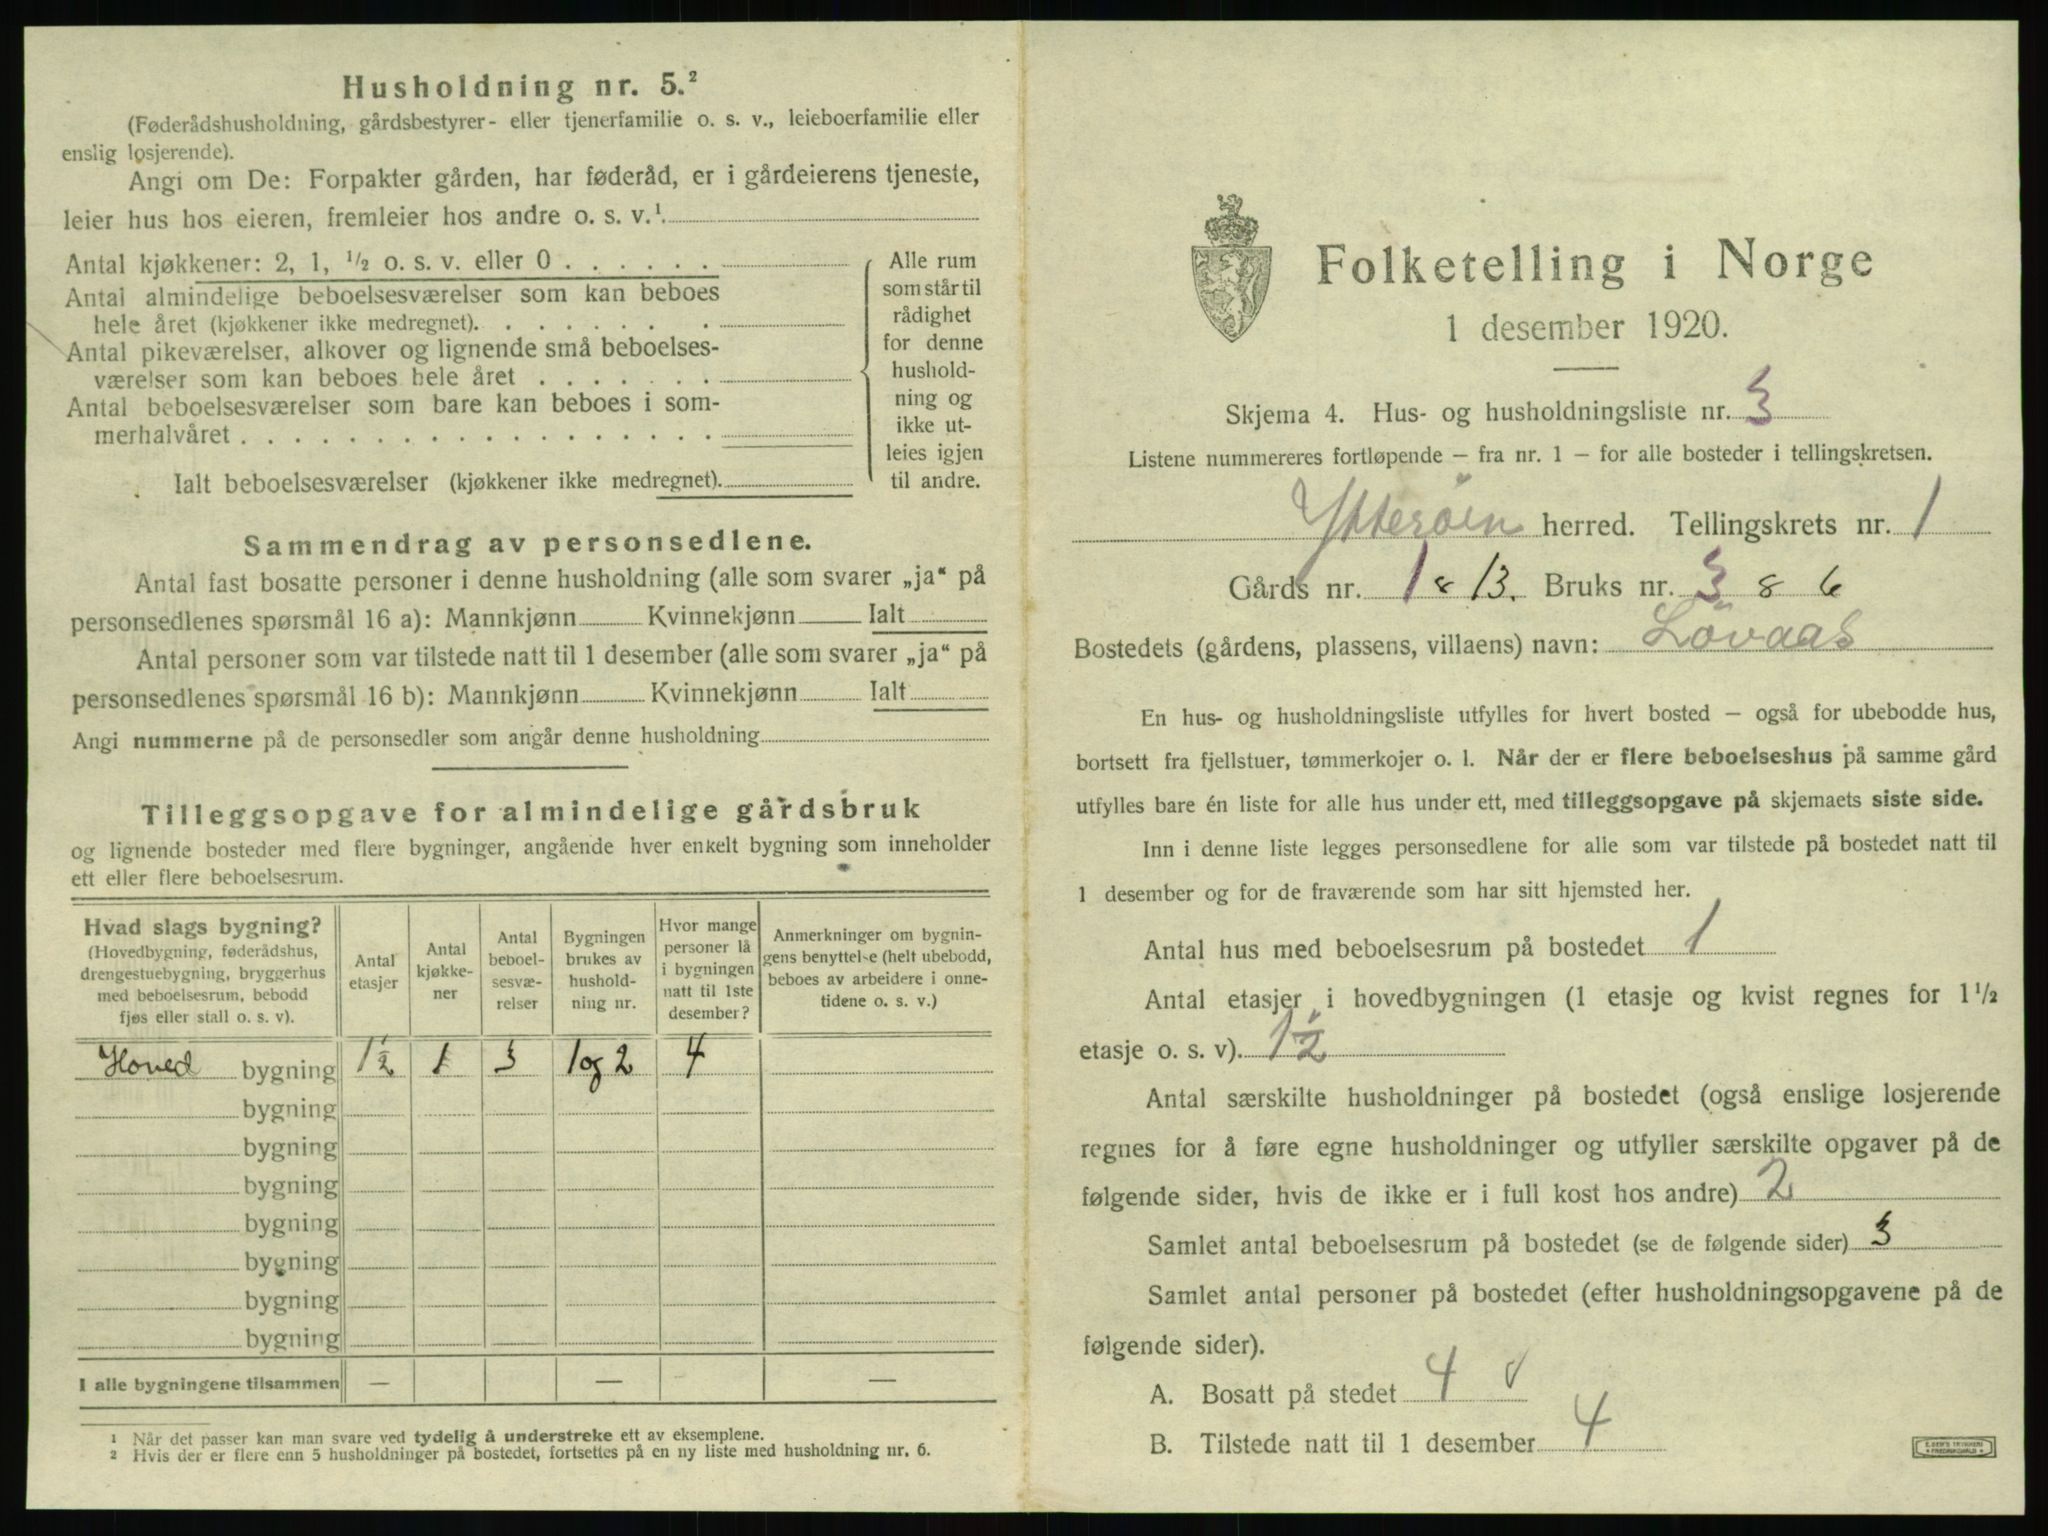 Husholdning nr. 5.²
(Føderådshusholdning, gårdsbestyrer- eller tjenerfamilie o. s. v., leieboerfamilie eller
enslig losjerende).
Angi om De: Forpakter gården, har føderåd, er i gårdeierens tjeneste,
leier hus hos eieren, fremleier hos andre o. s. v.¹
Antal kjøkkener: 2, 1, ¹/₂ o. s. v. eller 0 . . . . . .
Antal almindelige beboelsesværelser som kan beboes
hele året (kjøkkener ikke medregnet). . . . . . . . .
Antal pikeværelser, alkover og lignende små beboelses-
værelser som kan beboes hele året . . . . . . .
Antal beboelsesværelser som bare kan beboes i som-
merhalvåret . . . . . . . . . . . . . . . . . .
Ialt beboelsesværelser (kjøkkener ikke medregnet).
Alle rum
som står til
rådighet
for denne
hushold-
ning og
ikke ut-
leies igjen
til andre.
Sammendrag av personsedlene.
Antal fast bosatte personer i denne husholdning (alle som svarer „ja“ på
personsedlenes spørsmål 16 a): Mannkjønn Kvinnekjønn Ialt
Antal personer som var tilstede natt til 1 desember (alle som svarer „ja“ på
personsedlenes spørsmål 16 b): Mannkjønn Kvinnekjønn Ialt
Angi nummerne på de personsedler som angår denne husholdning
Tilleggsopgave for almindelige gårdsbruk
og lignende bosteder med flere bygninger, angående hver enkelt bygning som inneholder
ett eller flere beboelsesrum.
Hvad slags bygning?
(Hovedbygning, føderådshus,
drengestuebygning, bryggerhus
med beboelsesrum, bebodd
fjøs eller stall o. s. v).
Antal
etasjer
Antal
kjøkke-
ner
Antal
beboel-
sesvæ-
relser
Bygningen
brukes av
hushold-
ning nr.
Hvor mange
personer lå
i bygningen
natt til 1ste
desember?
Anmerkninger om bygnin-
gens benyttelse (helt ubebodd,
beboes av arbeidere i onne-
tidene o. s. v.)
Hoved bygning 1½ 1 3 1 og 2 4
bygning
bygning
bygning
bygning
bygning
bygning
bygning
I alle bygningene tilsammen — — —
¹ Når det passer kan man svare ved tydelig å understreke ett av eksemplene.
² Hvis der er flere enn 5 husholdninger på bostedet, fortsettes på en ny liste med husholdning nr. 6.
Folketelling i Norge
1 desember 1920.
Skjema 4. Hus- og husholdningsliste nr. 3
Listene nummereres fortløpende — fra nr. 1 — for alle bosteder i tellingskretsen.
Ytterøen herred. Tellingskrets nr. 1
Gårds nr. 1 & 13. Bruks nr. 3 & 6
Bostedets (gårdens, plassens, villaens) navn: Lövaas
En hus- og husholdningsliste utfylles for hvert bosted — også for ubebodde hus,
bortsett fra fjellstuer, tømmerkojer o. l. Når der er flere beboelseshus på samme gård
utfylles bare én liste for alle hus under ett, med tilleggsopgave på skjemaets siste side.
Inn i denne liste legges personsedlene for alle som var tilstede på bostedet natt til
1 desember og for de fraværende som har sitt hjemsted her.
Antal hus med beboelsesrum på bostedet 1
Antal etasjer i hovedbygningen (1 etasje og kvist regnes for 1¹/₂
etasje o. s. v). 1½
Antal særskilte husholdninger på bostedet (også enslige losjerende
regnes for å føre egne husholdninger og utfyller særskilte opgaver på de
følgende sider, hvis de ikke er i full kost hos andre) 2
Samlet antal beboelsesrum på bostedet (se de følgende sider) 3
Samlet antal personer på bostedet (efter husholdningsopgavene på de
følgende sider).
A. Bosatt på stedet 4
B. Tilstede natt til 1 desember 4